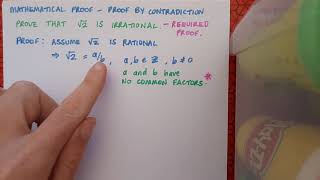 MATHEMATICAL PROOF - PROOF BY CONTRADICTION
PROVE THAT √2 IS IRRATIONAL - REQUIRED
PROOF.
PROOF: ASSUME √2 IS RATIONAL
⇒ √2 = a/b, a,b ∈ ℤ, b ≠ 0
a and b have
NO COMMON FACTORS *